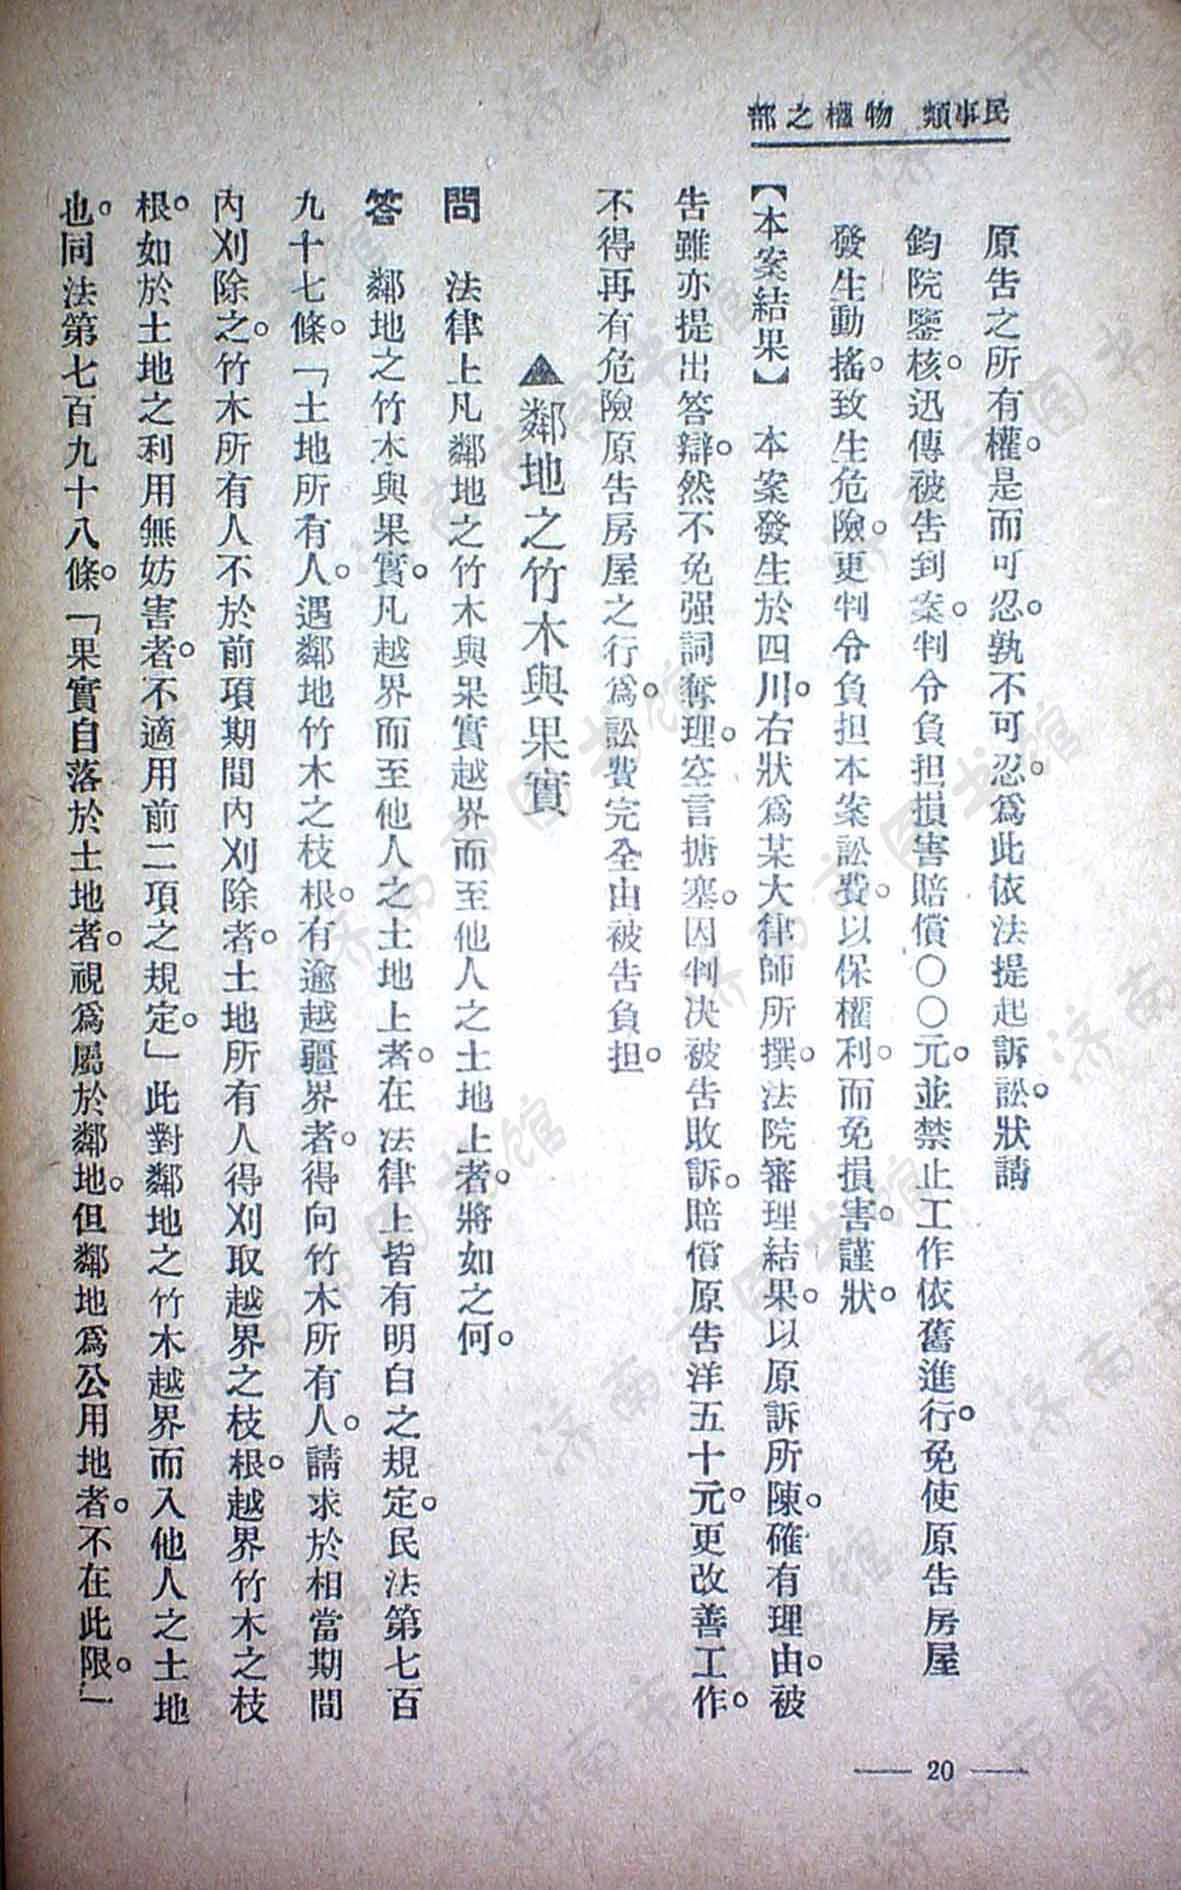 民事類　物權之部
原告之所有權。是而可忍。孰不可忍。爲此依法提起訴訟。狀請
鈞院鑒核。迅傳被告到案。判令負担損害賠償〇〇元。並禁止工作依舊進行。免使原告房屋
發生動搖。致生危險。更判令負担本案訟費。以保權利。而免損害。謹狀。
【本案結果】　本案發生於四川。右狀爲某大律師所撰。法院審理結果。以原訴所陳。確有理由。被
告雖亦提出答辯。然不免强詞奪理。空言搪塞。因判决被告敗訴。賠償原告洋五十元。更改善工作。
不得再有危險原告房屋之行爲。訟費完全由被告負担。
▲鄰地之竹木與果實
問　法律上凡鄰地之竹木與果實越界而至他人之土地上者。將如之何。
答　鄰地之竹木與果實。凡越界而至他人之土地上者。在法律上皆有明白之規定。民法第七百
九十七條。「土地所有人。遇鄰地竹木之枝根。有逾越疆界者。得向竹木所有人。請求於相當期間
內刈除之。竹木所有人不於前項期間內刈除者。土地所有人得刈取越界之枝根。越界竹木之枝
根。如於土地之利用無妨害者。不適用前二項之規定。」此對鄰地之竹木越界而入他人之土地
也。同法第七百九十八條。「果實自落於土地者。視爲屬於鄰地。但鄰地爲公用地者。不在此限。」
— 20 —
济南市图书馆